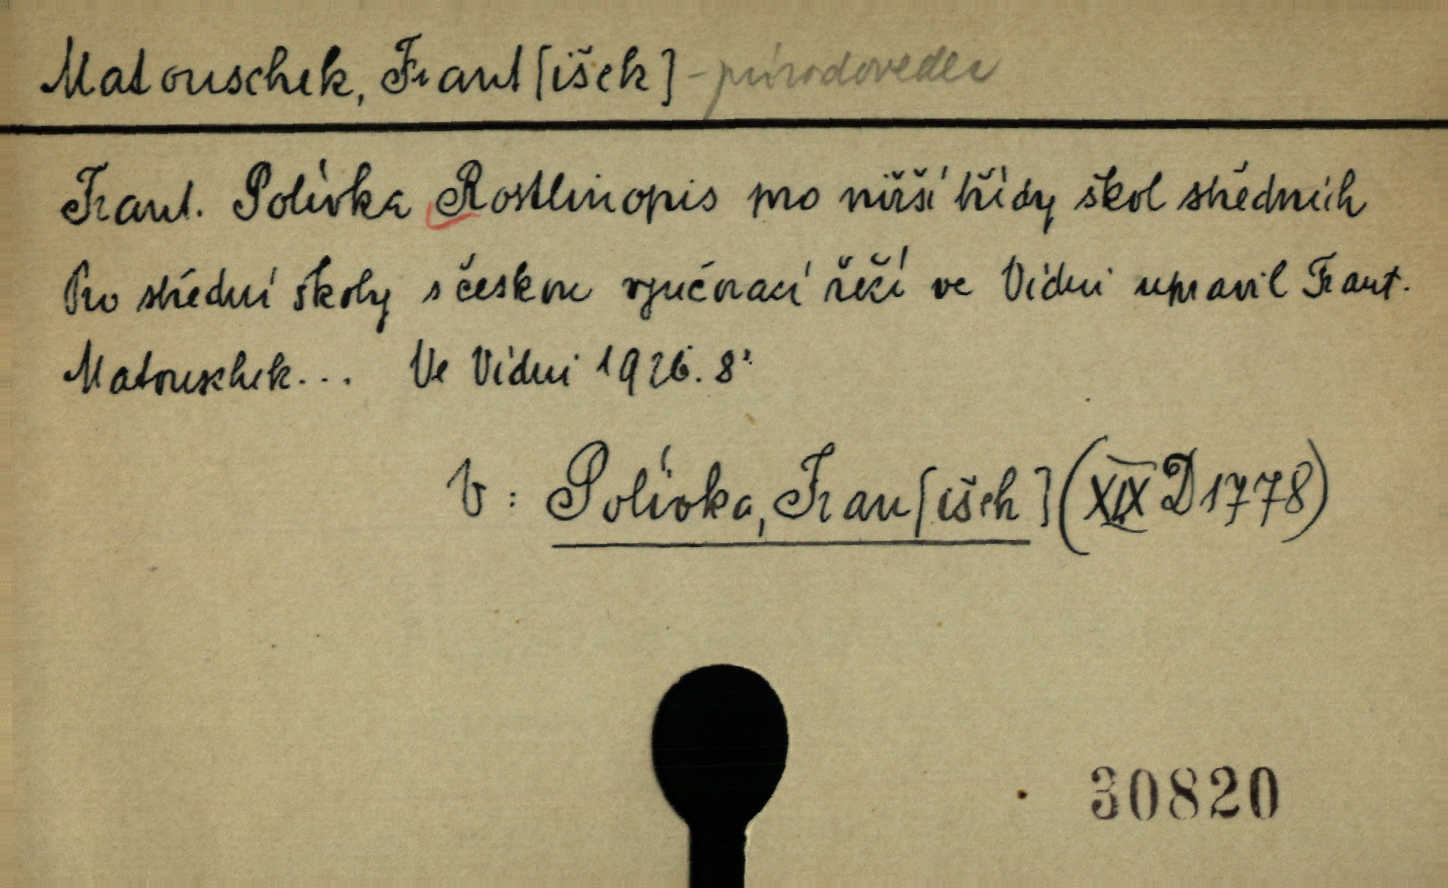 Matouschek, Frant[išek] - přírodovědec
Frant. Polívka Rostlinopis pro nižší třídy škol středních
Pro střední školy s českou vyučovací řečí ve Vídni upravil Frant.
Matouschek... Ve Vídni 1926. 8°.
V: Polívka, Fran[išek] (XIX D 1778)
30820